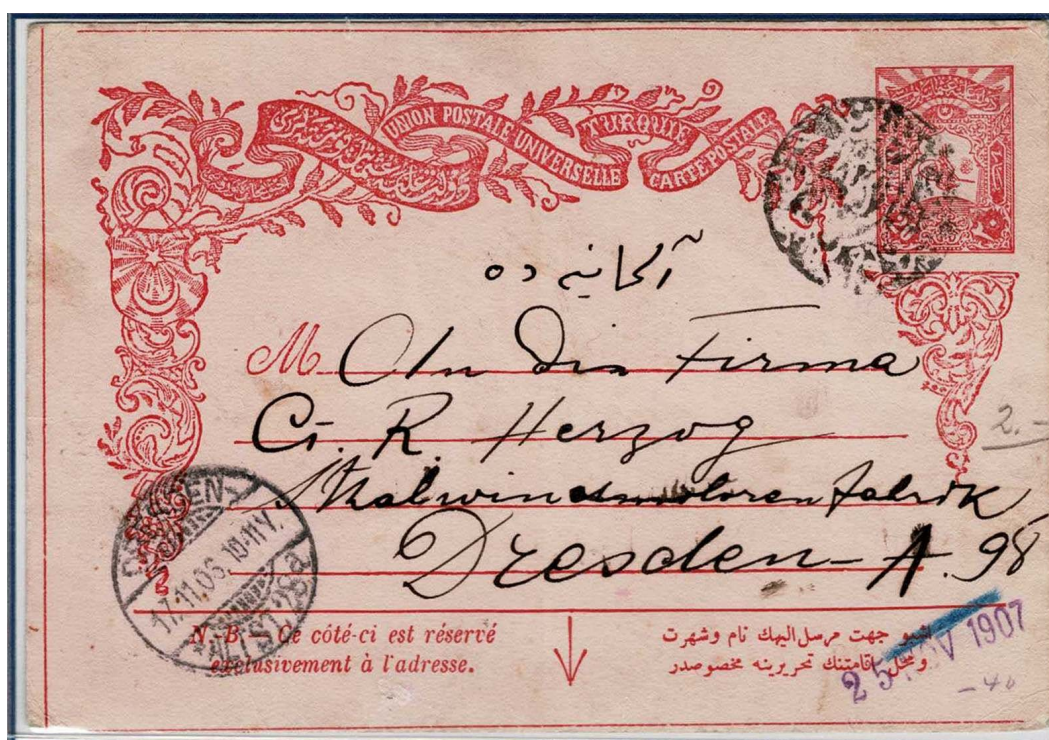 UNION POSTALE UNIVERSELLE
TURQUIE
CARTE POSTALE
آلمانیه ده
M An Die Firma
G. R. Herzog
Stahlwindmotorenfabrik
Dresden-A. 98
2.-
DRESDEN-
ALTST. 28a
17.11.06. 10-11V.
N.-B. - Ce côté-ci est réservé
exclusivement à l'adresse.
اشبو جهت مرسل الیهك نام وشهرت
ومحل اقامتنك تحریرینه مخصوصدر
25 NOV 1907